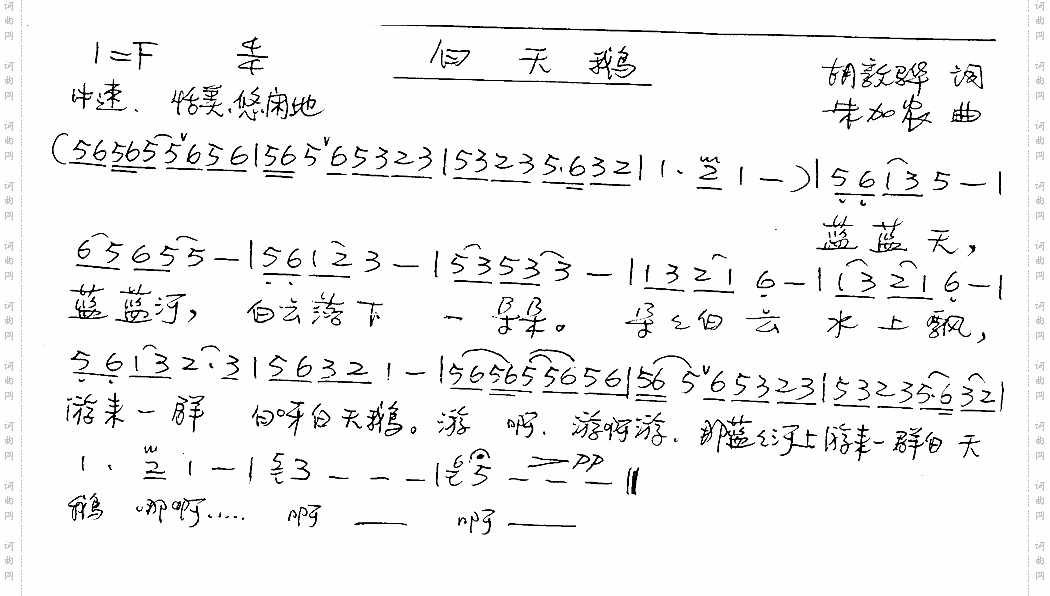 1=F 4/4 白天鹅
胡敦骅 词
中速、恬美、悠闲地
朱加农 曲
(56565 5 656|565 653 23|53 235.632|1. 2 1 —)|56 13 5 —|
蓝蓝天,
65 65 5 —|56 12 3 —|53 53 3 —|13 21 6 —|13 21 6 —|
蓝蓝河, 白云落下 一朵朵。 朵々白云 水上飘,
56 13 2.3|56 32 1 —|565655656|5656532 3|53 235.632|
游来一群 白呀白天鹅。游 啊、游啊游、那蓝々河上游来一群白天
1. 2 1 —|3 — — —|5 — — —‖ pp
鹅 哪啊..... 啊 —— 啊 ——
词曲网